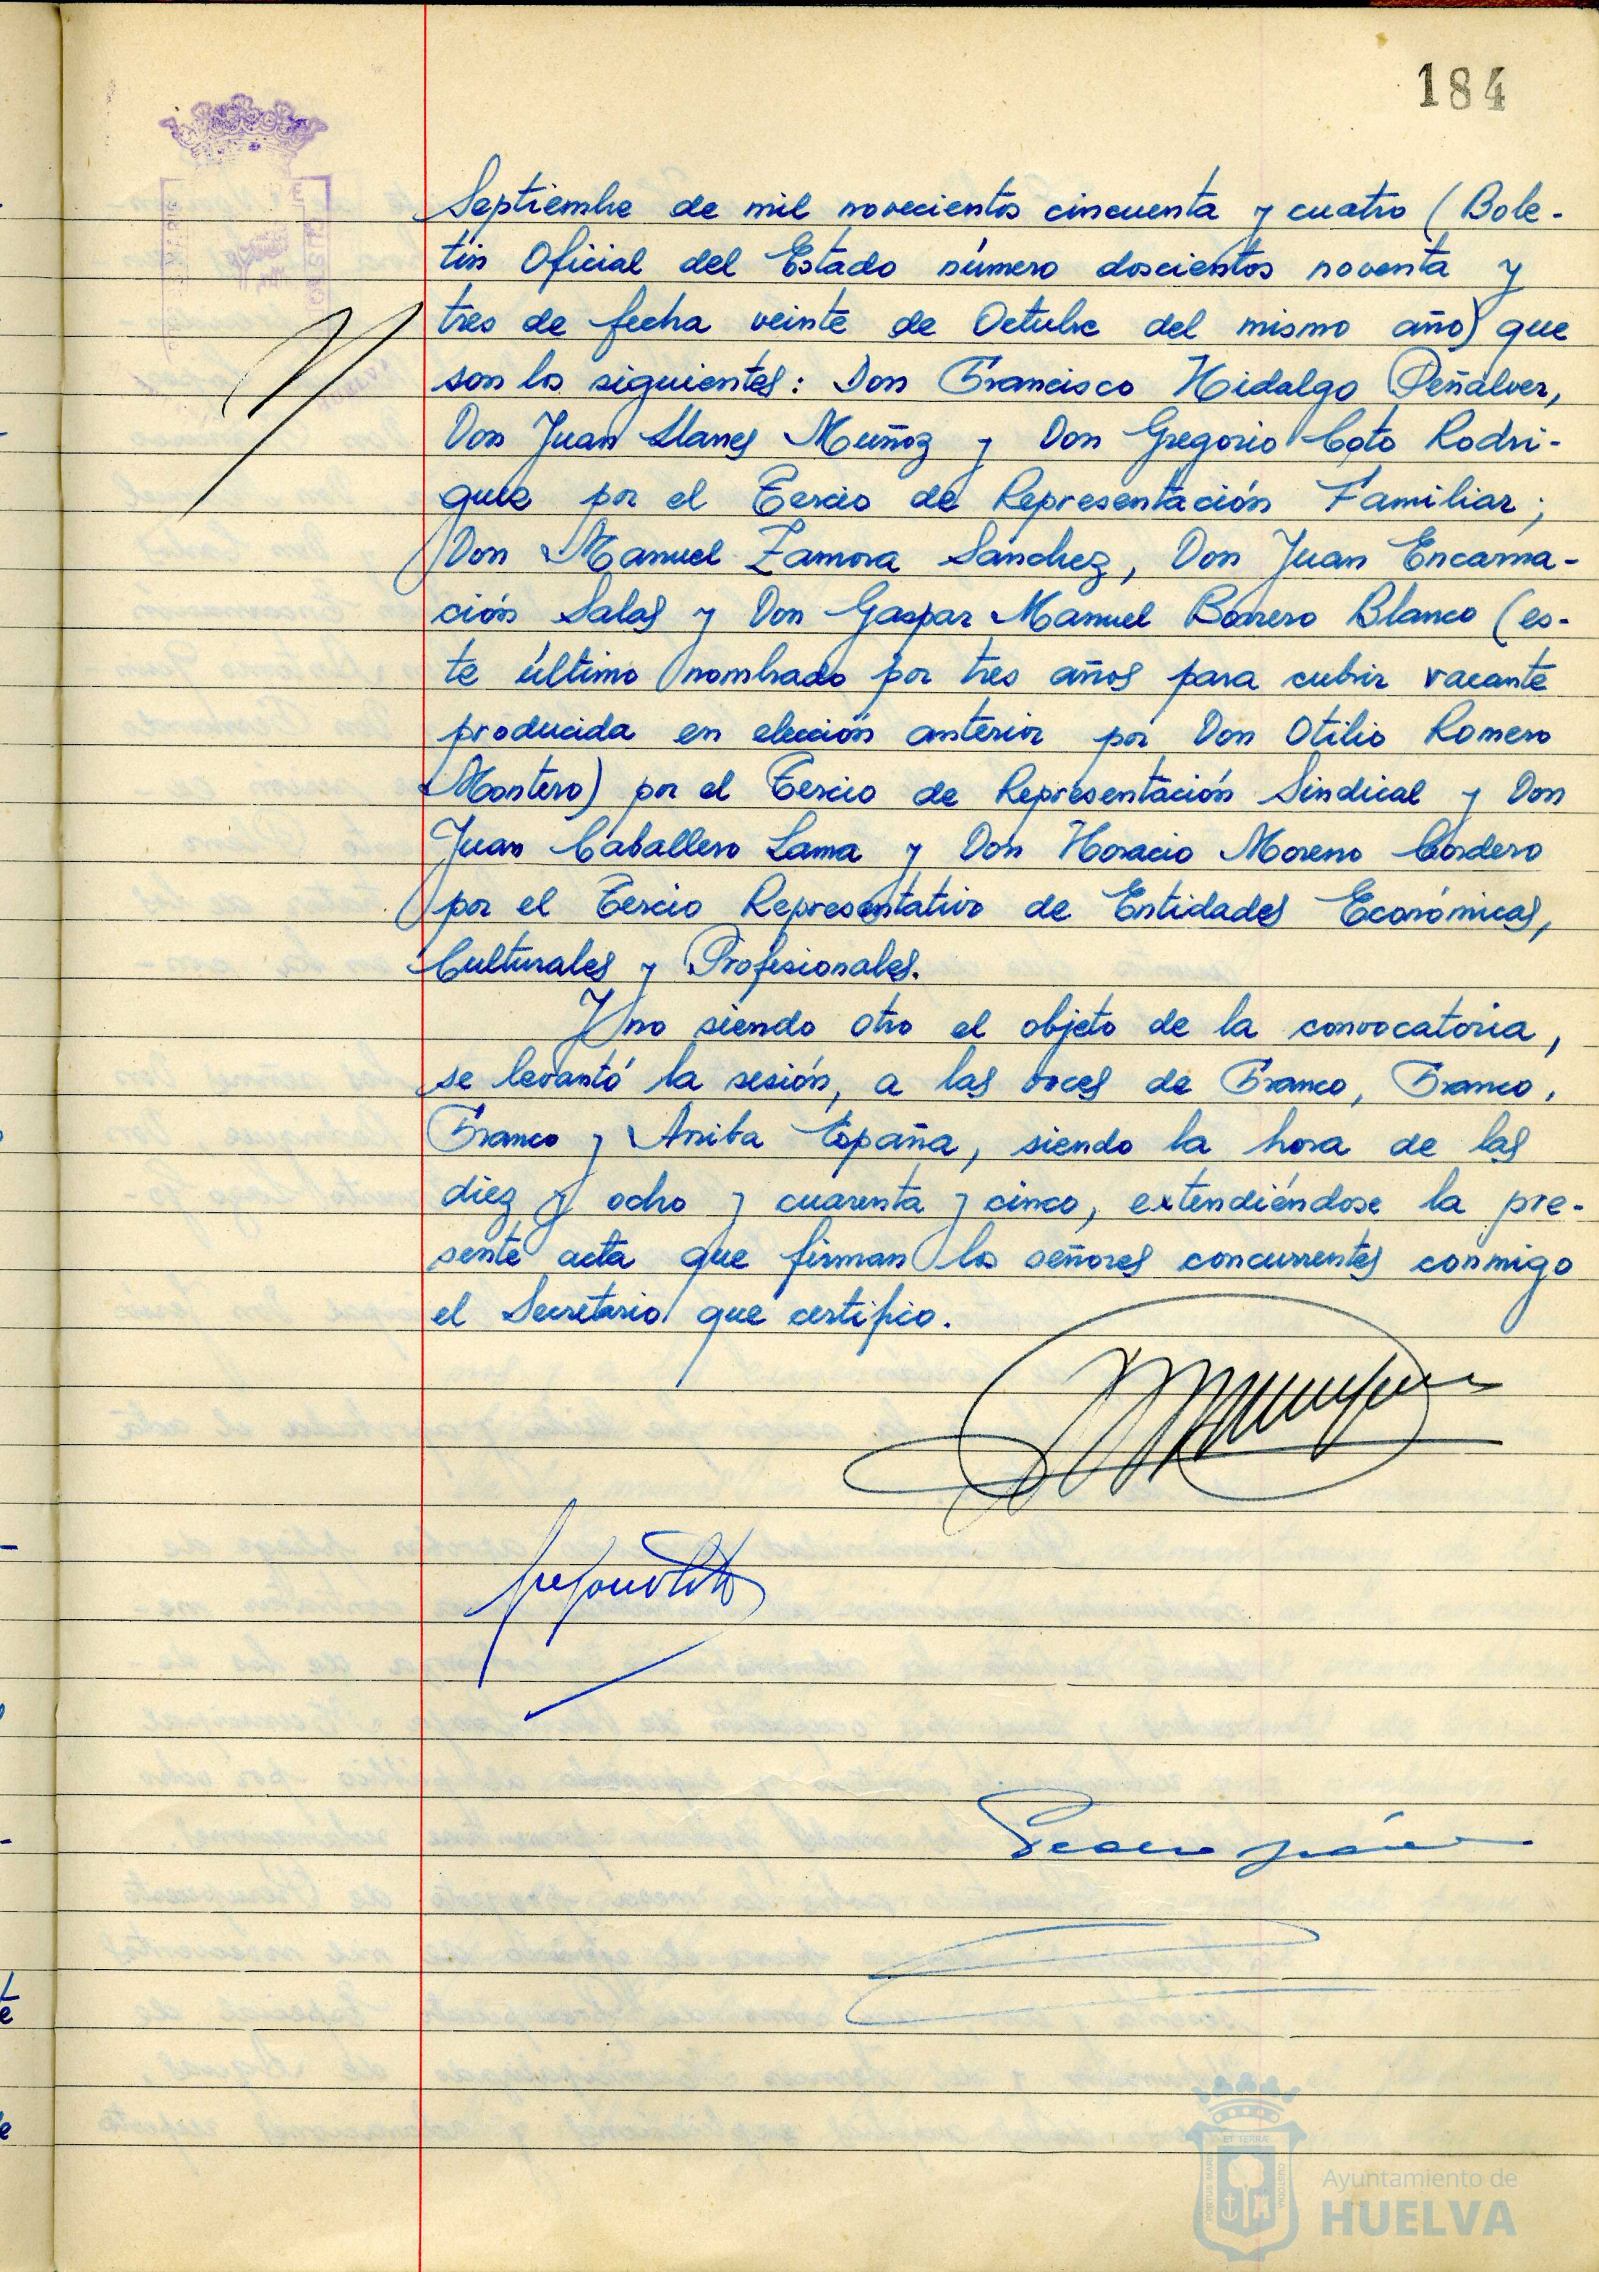 184
Septiembre de mil novecientos cincuenta y cuatro (Bole-
tín Oficial del Estado número doscientos noventa y
tres de fecha veinte de Octubre del mismo año) que
son los siguientes: Don Francisco Hidalgo Peñalver,
Don Juan Llanes Muñoz y Don Gregorio Coto Rodri-
guez por el Tercio de Representación Familiar;
Don Manuel Zamora Sánchez, Don Juan Encarna-
ción Salas y Don Gaspar Manuel Borrero Blanco (es-
te último nombrado por tres años para cubrir vacante
producida en elección anterior por Don Otilio Romero
Montero) por el Tercio de Representación Sindical y Don
Juan Caballero Lama y Don Horacio Moreno Cordero
por el Tercio Representativo de Entidades Económicas,
Culturales y Profesionales.
Y no siendo otro el objeto de la convocatoria,
se levantó la sesión, a las voces de Franco, Franco,
Franco y Arriba España, siendo la hora de las
diez y ocho y cuarenta y cinco, extendiéndose la pre-
sente acta que firman los señores concurrentes conmigo
el Secretario que certifico.
Ayuntamiento de
HUELVA